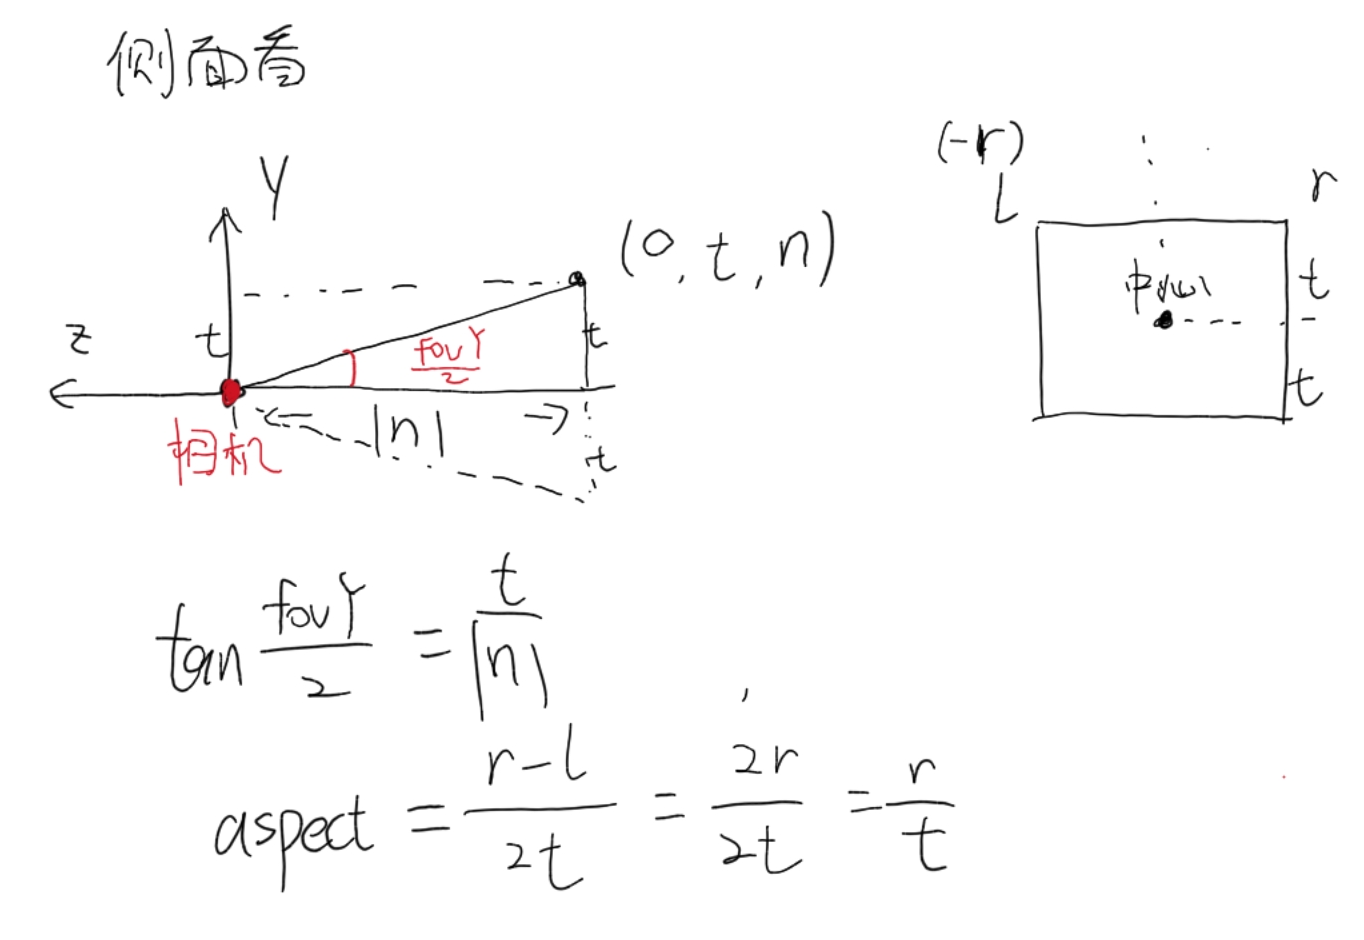 侧面看
Y
(0, t, n)
z
t
fovY/2
t
相机
|n|
t
(-r)
l
r
中心
t
t
tan fovY/2 = t/|n|
aspect = r-l/2t = 2r/2t = r/t